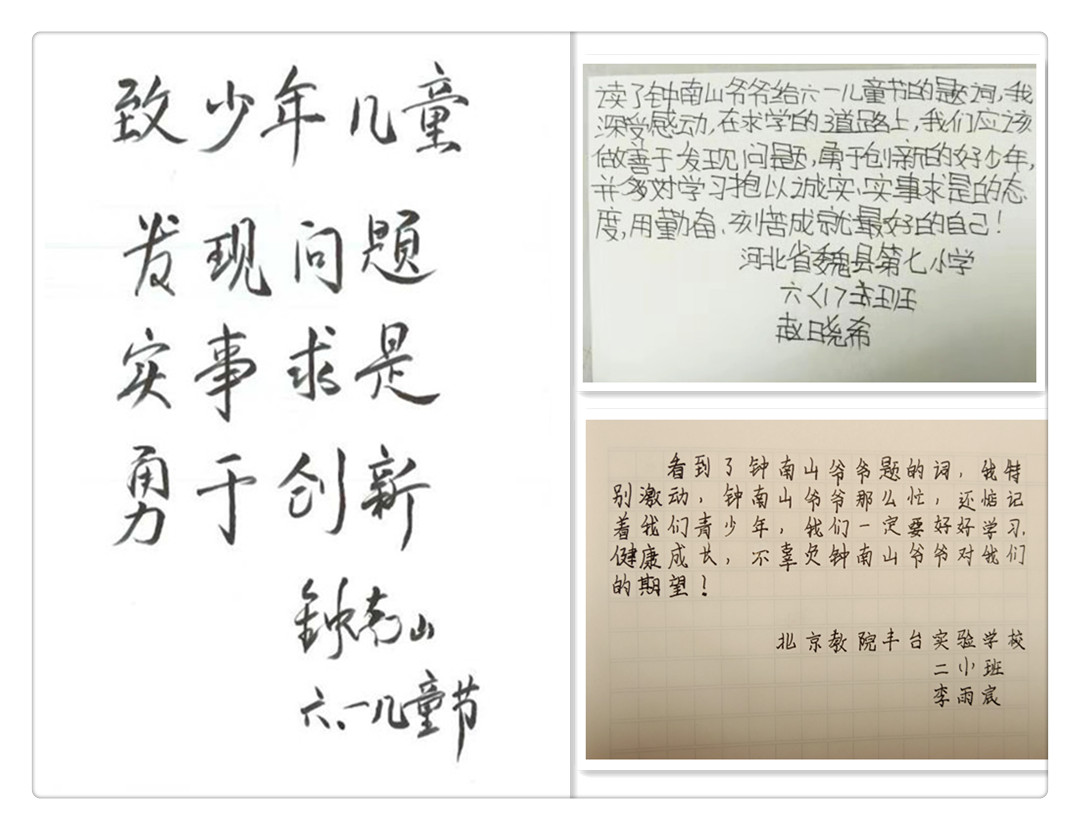 致少年儿童
发现问题
实事求是
勇于创新
钟南山
六.一儿童节
读了钟南山爷爷给六一儿童节的题词,我
深受感动,在求学的道路上,我们应该
做善于发现问题,勇于创新的好少年,
并多对学习抱以诚实,实事求是的态
度,用勤奋、刻苦成就最好的自己!
河北省魏县第七小学
六〈17〉班
赵晓希
看到了钟南山爷爷题的词,我特
别激动,钟南山爷爷那么忙,还惦记
着我们青少年,我们一定要好好学习,
健康成长,不辜负钟南山爷爷对我们
的期望!
北京教院丰台实验学校
二小班
李雨宸